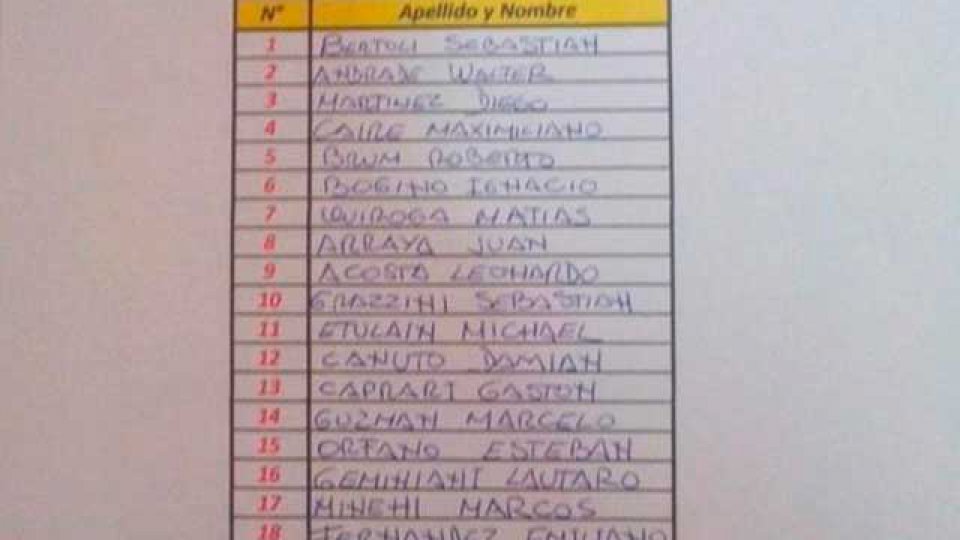 N° Apellido y Nombre
1 BERTOLI SEBASTIAN
2 ANDRADE WALTER
3 MARTINEZ DIEGO
4 CAIRE MAXIMILIANO
5 BRUM ROBERTO
6 BOGINO IGNACIO
7 QUIROGA MATIAS
8 ARRAYA JUAN
9 ACOSTA LEONARDO
10 GRAZZINI SEBASTIAN
11 ETULAIN MICHAEL
12 CANUTO DAMIAN
13 CAPRARI GASTON
14 GUZMAN MARCELO
15 ORFANO ESTEBAN
16 GEMINIANI LAUTARO
17 MINEHI MARCOS
18 FERNANDEZ EMILIANO